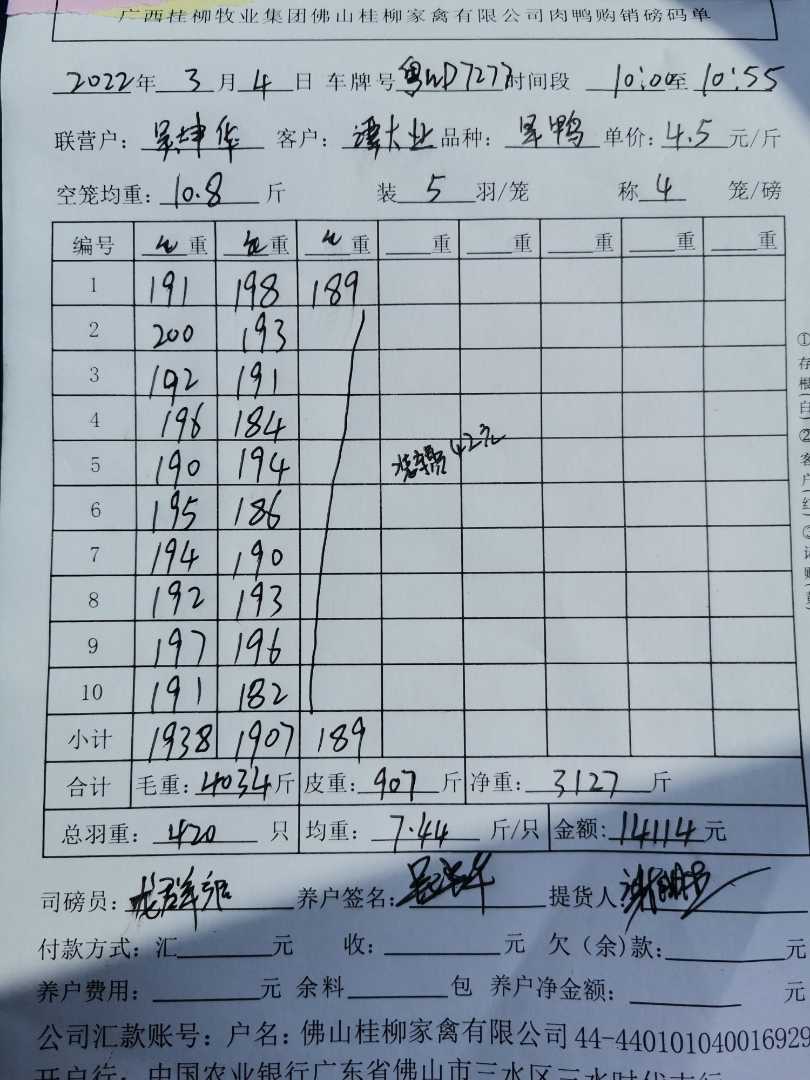 广西桂柳牧业集团佛山桂柳家禽有限公司肉鸭购销磅码单
2022年 3月 4日 车牌号 时间段 10:00至 10:55
联营户: 吴坤华 客户: 谭大业 品种: 鸭 单价: 4.5元/斤
空笼均重: 10.8 斤 装 5 羽/笼 称 4 笼/磅
编号 毛重 毛重 毛重 重 重 重 重 重
1 191 198 189
2 200 193
3 192 191
4 196 184
5 190 194 42元
6 195 186
7 194 190
8 192 193
9 197 196
10 191 182
小计 1938 1907 189
合计 毛重: 4034斤 皮重: 907 斤 净重: 3127 斤
总羽重: 420 只 均重: 7.44 斤/只 金额: 14114元
司磅员: 养户签名: 提货人
付款方式: 汇 元 收: 元 欠(余)款: 元
养户费用: 元 余料 包 养户净金额: 元
公司汇款账号: 户名: 佛山桂柳家禽有限公司 44-440101040016929
开户行: 中国农业银行广东省佛山市三水区三水时代支行
①存根(白)②客户(红)③